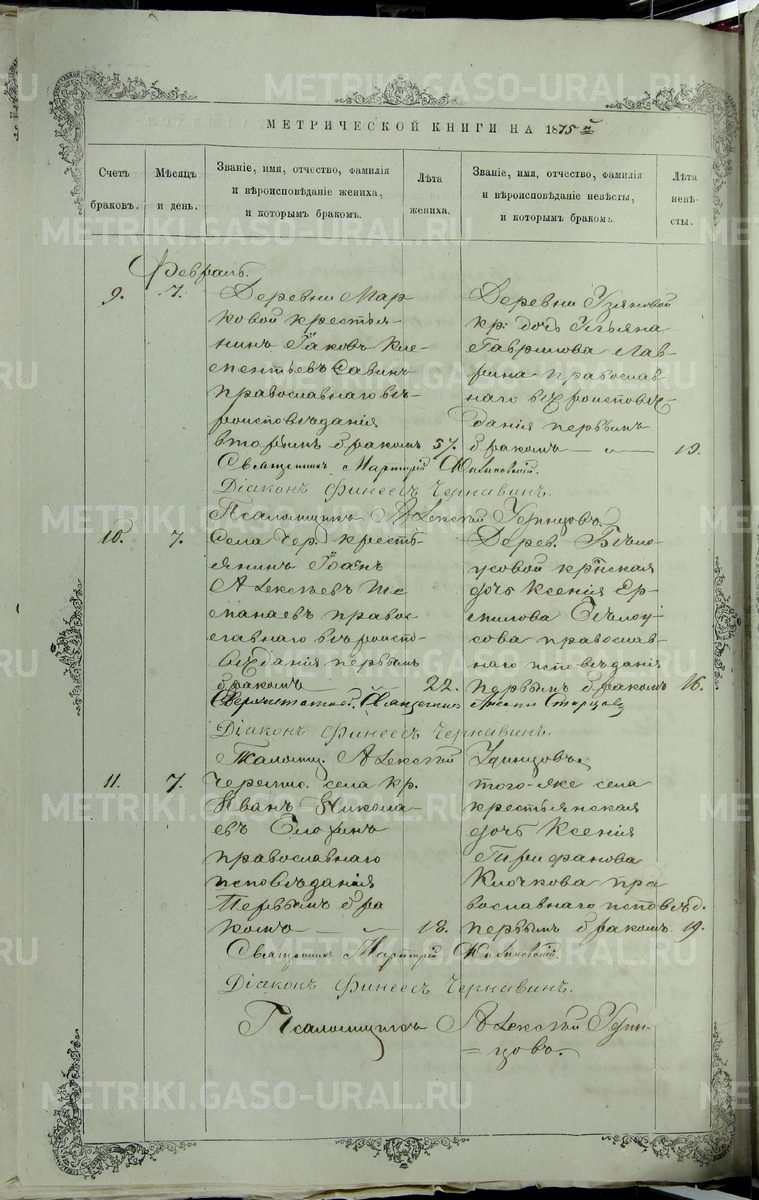 МЕТРИЧЕСКОЙ КНИГИ НА 1875 й
Счетъ браковъ.
Мѣсяцъ и день.
Званіе, имя, отчество, фамилія и вѣроисповѣданіе жениха, и которымъ бракомъ.
Лѣта жениха.
Званіе, имя, отчество, фамилія и вѣроисповѣданіе невѣсты, и которымъ бракомъ.
Лѣта невѣсты.
Февраль.
9. 7.
Деревни Мар-
ковой крестья-
нинъ Іаковъ Кле-
ментьевъ Савинъ
православнаго вѣ-
роисповѣданія
вторымъ бракомъ 57.
Деревни Узяновой
кр. дочь Ульяна
Гаврилова Лав-
рина православ-
наго вѣроисповѣ-
данія первымъ
бракомъ 19.
Священникъ Мартирій
Діаконъ Финеесъ Чернавинъ.
Псаломщикъ Алексѣй Удинцовъ.
10. 7.
Села Чер. кресть-
янинъ Іоаннъ
Алексѣевъ Ше-
манаевъ право-
славнаго вѣроиспо-
вѣданія первымъ
бракомъ 22.
Дерев. Бѣло-
усовой кр҃нская
дочь Ксенія Ер-
милова Бѣлоу-
сова православ-
наго исповѣданія
первымъ бракомъ 16.
Сверхштатный Священникъ Старцовъ
Діаконъ Финеесъ Чернавинъ.
Псаломщ. Алексѣй Удинцовъ.
11. 7.
Черемис. села кр.
Иванъ Никола-
евъ Елохинъ
православнаго
исповѣданія
Первымъ бра
комъ 18.
того-же села
крестьянская
дочь Ксенія
Трифанова
Клочкова пра
вославнаго исповѣд.
первымъ бракомъ 19.
Священникъ Мартирій
Діаконъ Финеесъ Чернавинъ.
Псаломщикъ Алексѣй Удин-
цовъ.
METRIKI.GASO-URAL.RU